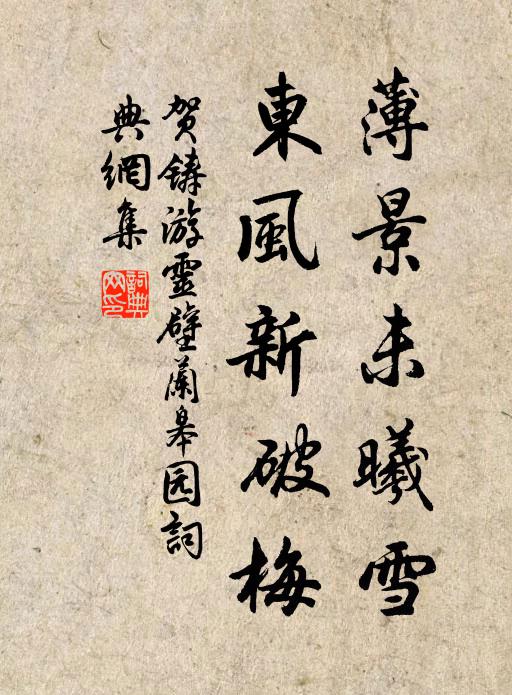 薄景未曦雪
東風新破梅
賀鋳游靈壁蘭皋园詞
典網集
詞典
网印